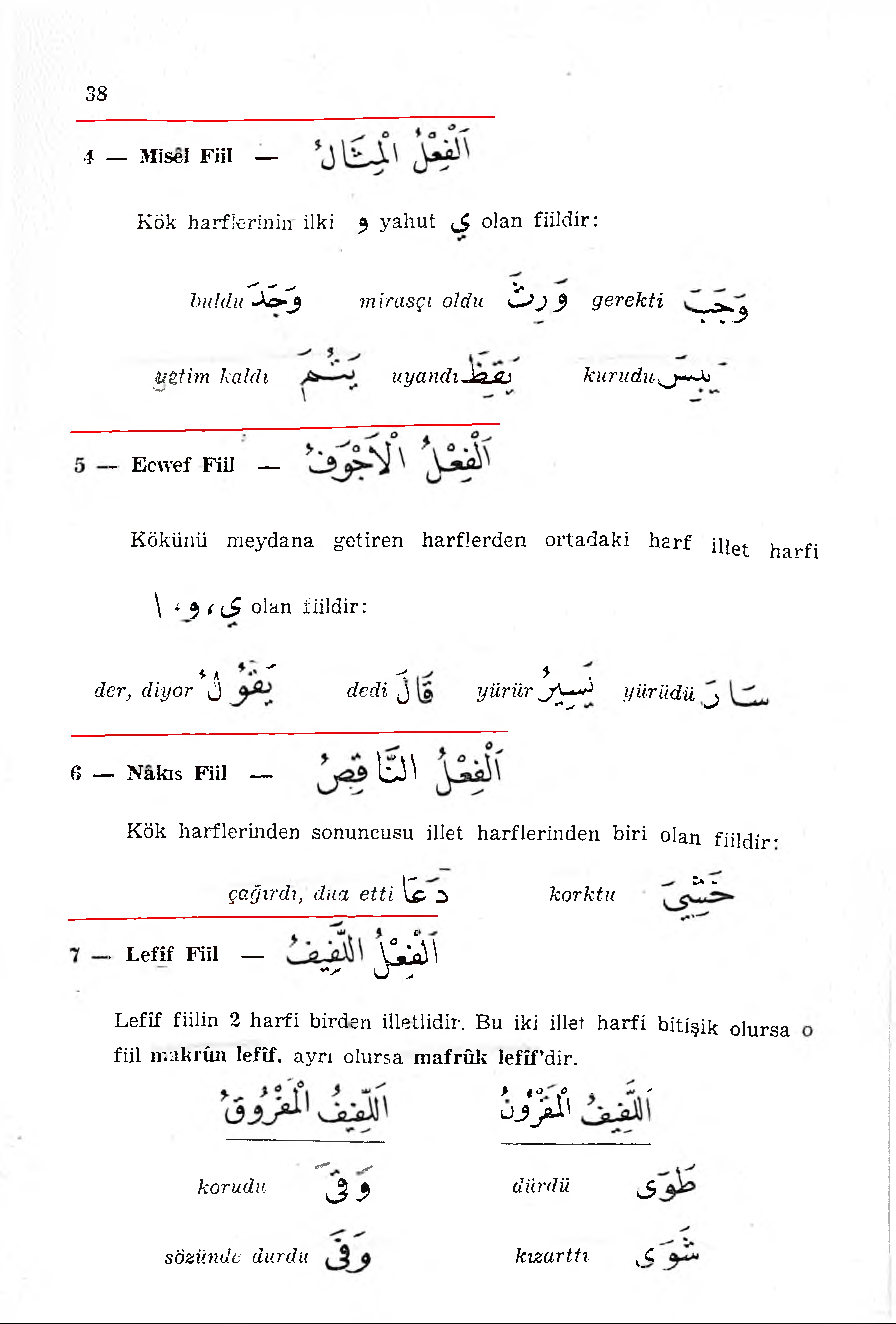 38
4 — Misêl Fiil — اَلْفِعْلُ الْمِثَالُ
Kök harflerinin ilki و yahut ي olan fiildir:
buldu وَجَدَ mirasçı oldu وَرِثَ gerekti وَجَبَ
yetim kaldı يَتُمَ uyandı يَقِظَ kurudu يَبِسَ
5 — Ecwef Fiil — اَلْفِعْلُ الْاَجْوَفُ
Kökünü meydana getiren harflerden ortadaki harf illet harfi
ا ، و ، ي olan fiildir:
der, diyor يَقُولُ dedi قَالَ yürür يَسِيرُ yürüdü سَارَ
6 — Nâkıs Fiil — اَلْفِعْلُ النَّاقِصُ
Kök harflerinden sonuncusu illet harflerinden biri olan fiildir:
çağırdı, dua etti دَعَا korktu خَشِيَ
7 — Lefîf Fiil — اَلْفِعْلُ اللَّفِيفُ
Lefîf fiilin 2 harfi birden illetlidir. Bu iki illet harfi bitişik olursa o
fiil makrûn lefîf, ayrı olursa mafrûk lefîf'dir.
اَللَّفِيفُ الْمَفْرُوقُ اَللَّفِيفُ الْمَقْرُونُ
korudu وَقَى dürdü طَوَى
sözünde durdu وَفَى kızarttı شَوَى